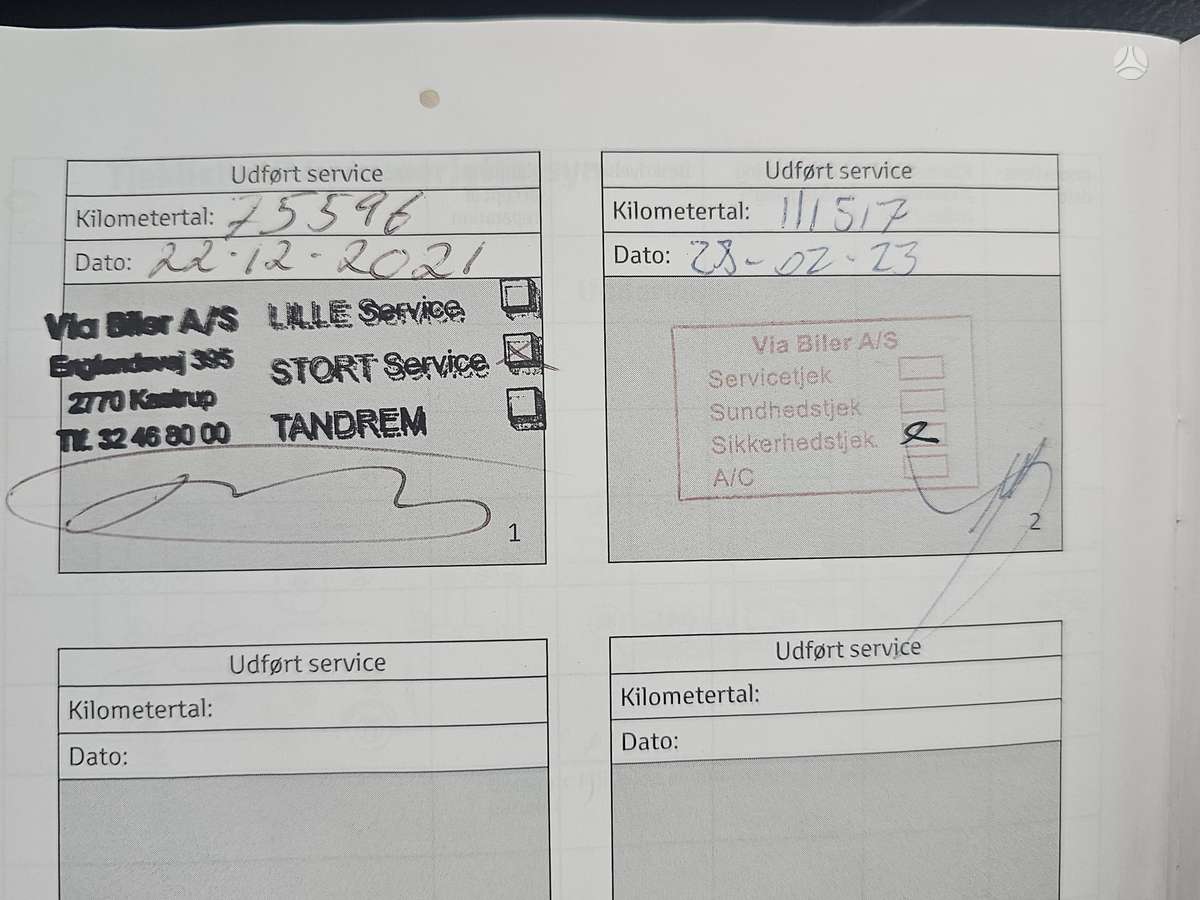 Udført service
Kilometertal: 75596
Dato: 22-12-2021
Via Biler A/S
Englandsvej 395
2770 Kastrup
Tlf. 32 46 80 00
LILLE Service
STORT Service
TANDREM
1
Udført service
Kilometertal: 111517
Dato: 28-02-23
Via Biler A/S
Servicetjek
Sundhedstjek
Sikkerhedstjek
A/C
2
Udført service
Kilometertal:
Dato:
Udført service
Kilometertal:
Dato: